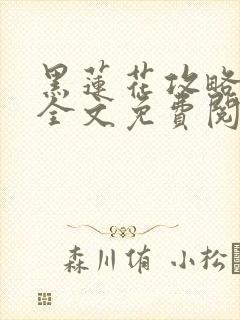 黑蓮花攻略
全文免費閱
森川侑 小松